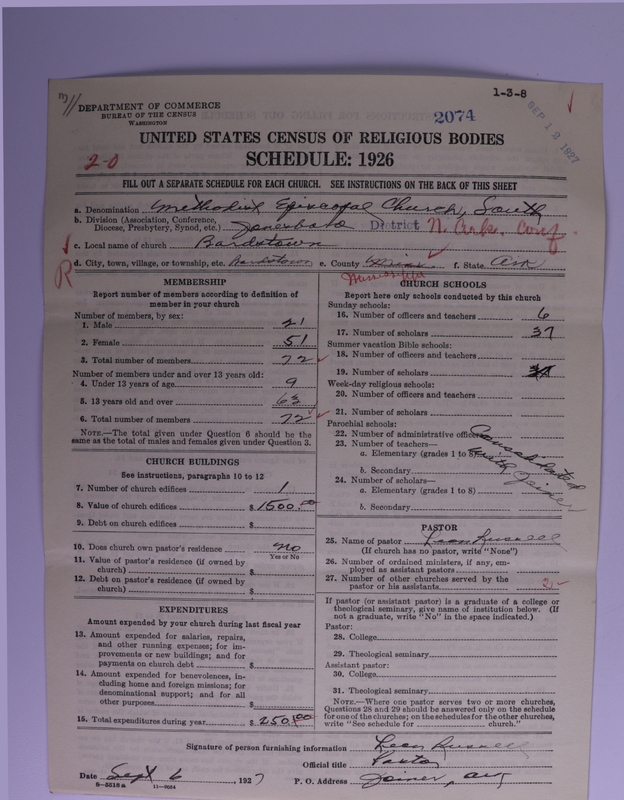 1-3-8
DEPARTMENT OF COMMERCE
BUREAU OF THE CENSUS
WASHINGTON
2074
SEP 12 1927
UNITED STATES CENSUS OF RELIGIOUS BODIES
2-0
SCHEDULE: 1926
FILL OUT A SEPARATE SCHEDULE FOR EACH CHURCH. SEE INSTRUCTIONS ON THE BACK OF THIS SHEET
a. Denomination Methodist Episcopal Church, South
b. Division (Association, Conference, Diocese, Presbytery, Synod, etc.) Jonesboro District N. Ark. Conf.
c. Local name of church Bardstown
R
d. City, town, village, or township, etc. Bardstown e. County f. State Ark
Mississippi
MEMBERSHIP
Report number of members according to definition of
member in your church
Number of members, by sex:
1. Male 21
2. Female 51
3. Total number of members 72
Number of members under and over 13 years old:
4. Under 13 years of age 9
5. 13 years old and over 63
6. Total number of members 72
NOTE.—The total given under Question 6 should be the
same as the total of males and females given under Question 3.
CHURCH BUILDINGS
See instructions, paragraphs 10 to 12
7. Number of church edifices 1
8. Value of church edifices $ 1500.00
9. Debt on church edifices $
10. Does church own pastor's residence no
Yes or No
11. Value of pastor's residence (if owned by
church) $
12. Debt on pastor's residence (if owned by
church) $
EXPENDITURES
Amount expended by your church during last fiscal year
13. Amount expended for salaries, repairs,
and other running expenses; for im-
provements or new buildings; and for
payments on church debt $
14. Amount expended for benevolences, in-
cluding home and foreign missions; for
denominational support; and for all
other purposes $
15. Total expenditures during year $ 250.00
CHURCH SCHOOLS
Report here only schools conducted by this church
Sunday schools:
16. Number of officers and teachers 6
17. Number of scholars 37
Summer vacation Bible schools:
18. Number of officers and teachers
19. Number of scholars
Week-day religious schools:
20. Number of officers and teachers
21. Number of scholars
Parochial schools:
22. Number of administrative officers
23. Number of teachers—
a. Elementary (grades 1 to 8)
b. Secondary
Consolidated
with Joiner
24. Number of scholars—
a. Elementary (grades 1 to 8)
b. Secondary
PASTOR
25. Name of pastor Leon Russell
(If church has no pastor, write "None")
26. Number of ordained ministers, if any, em-
ployed as assistant pastors
27. Number of other churches served by the
pastor or his assistants 2-
If pastor (or assistant pastor) is a graduate of a college or
theological seminary, give name of institution below. (If
not a graduate, write "No" in the space indicated.)
Pastor:
28. College
29. Theological seminary
Assistant pastor:
30. College
31. Theological seminary
NOTE.—Where one pastor serves two or more churches,
Questions 28 and 29 should be answered only on the schedule
for one of the churches; on the schedules for the other churches,
write "See schedule for church."
Signature of person furnishing information Leon Russell
Official title Pastor
Date Sept 6, 1927 P. O. Address Joiner, Ark
8-5518a 11-9054